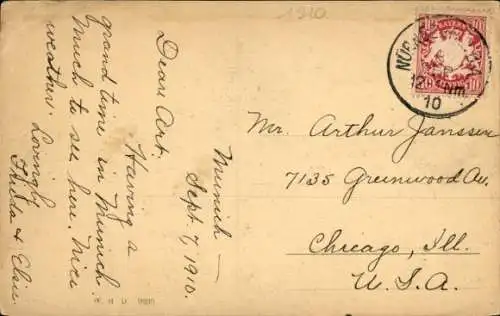 1910
Munich —
Sept. 7, 1910.
Dear Art:
Having a
grand time in Munich.
Much to see here. Nice
weather. Lovingly
Thilda & Elsa
Mr. Arthur Janssen
7135 Greenwood Av.
Chicago, Ill.
U.S.A.
10 BAYERN 10
12 Nm.
10